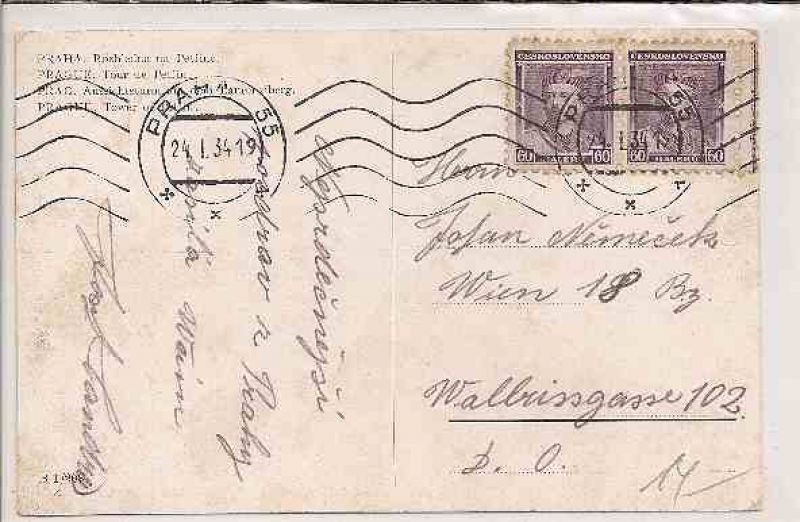 PRAHA. Rozhledna na Petříně.
PRAGUE. Tour de Petřín.
PRAG. Aussichtsturm auf dem Laurenziberg.
PRAGUE. Tower of
PRAHA 55
24. I. 34 19
ČESKOSLOVENSKO
60 HALÉŘŮ 60
ČESKOSLOVENSKO
60 HALÉŘŮ 60
55
I. 34 19
Nejsrdečnější
pozdrav z Prahy
Vám
Josef
Herrn
Johan Němeček
Wien 18 Bz.
Walbrissgasse 102.
D. Ö.